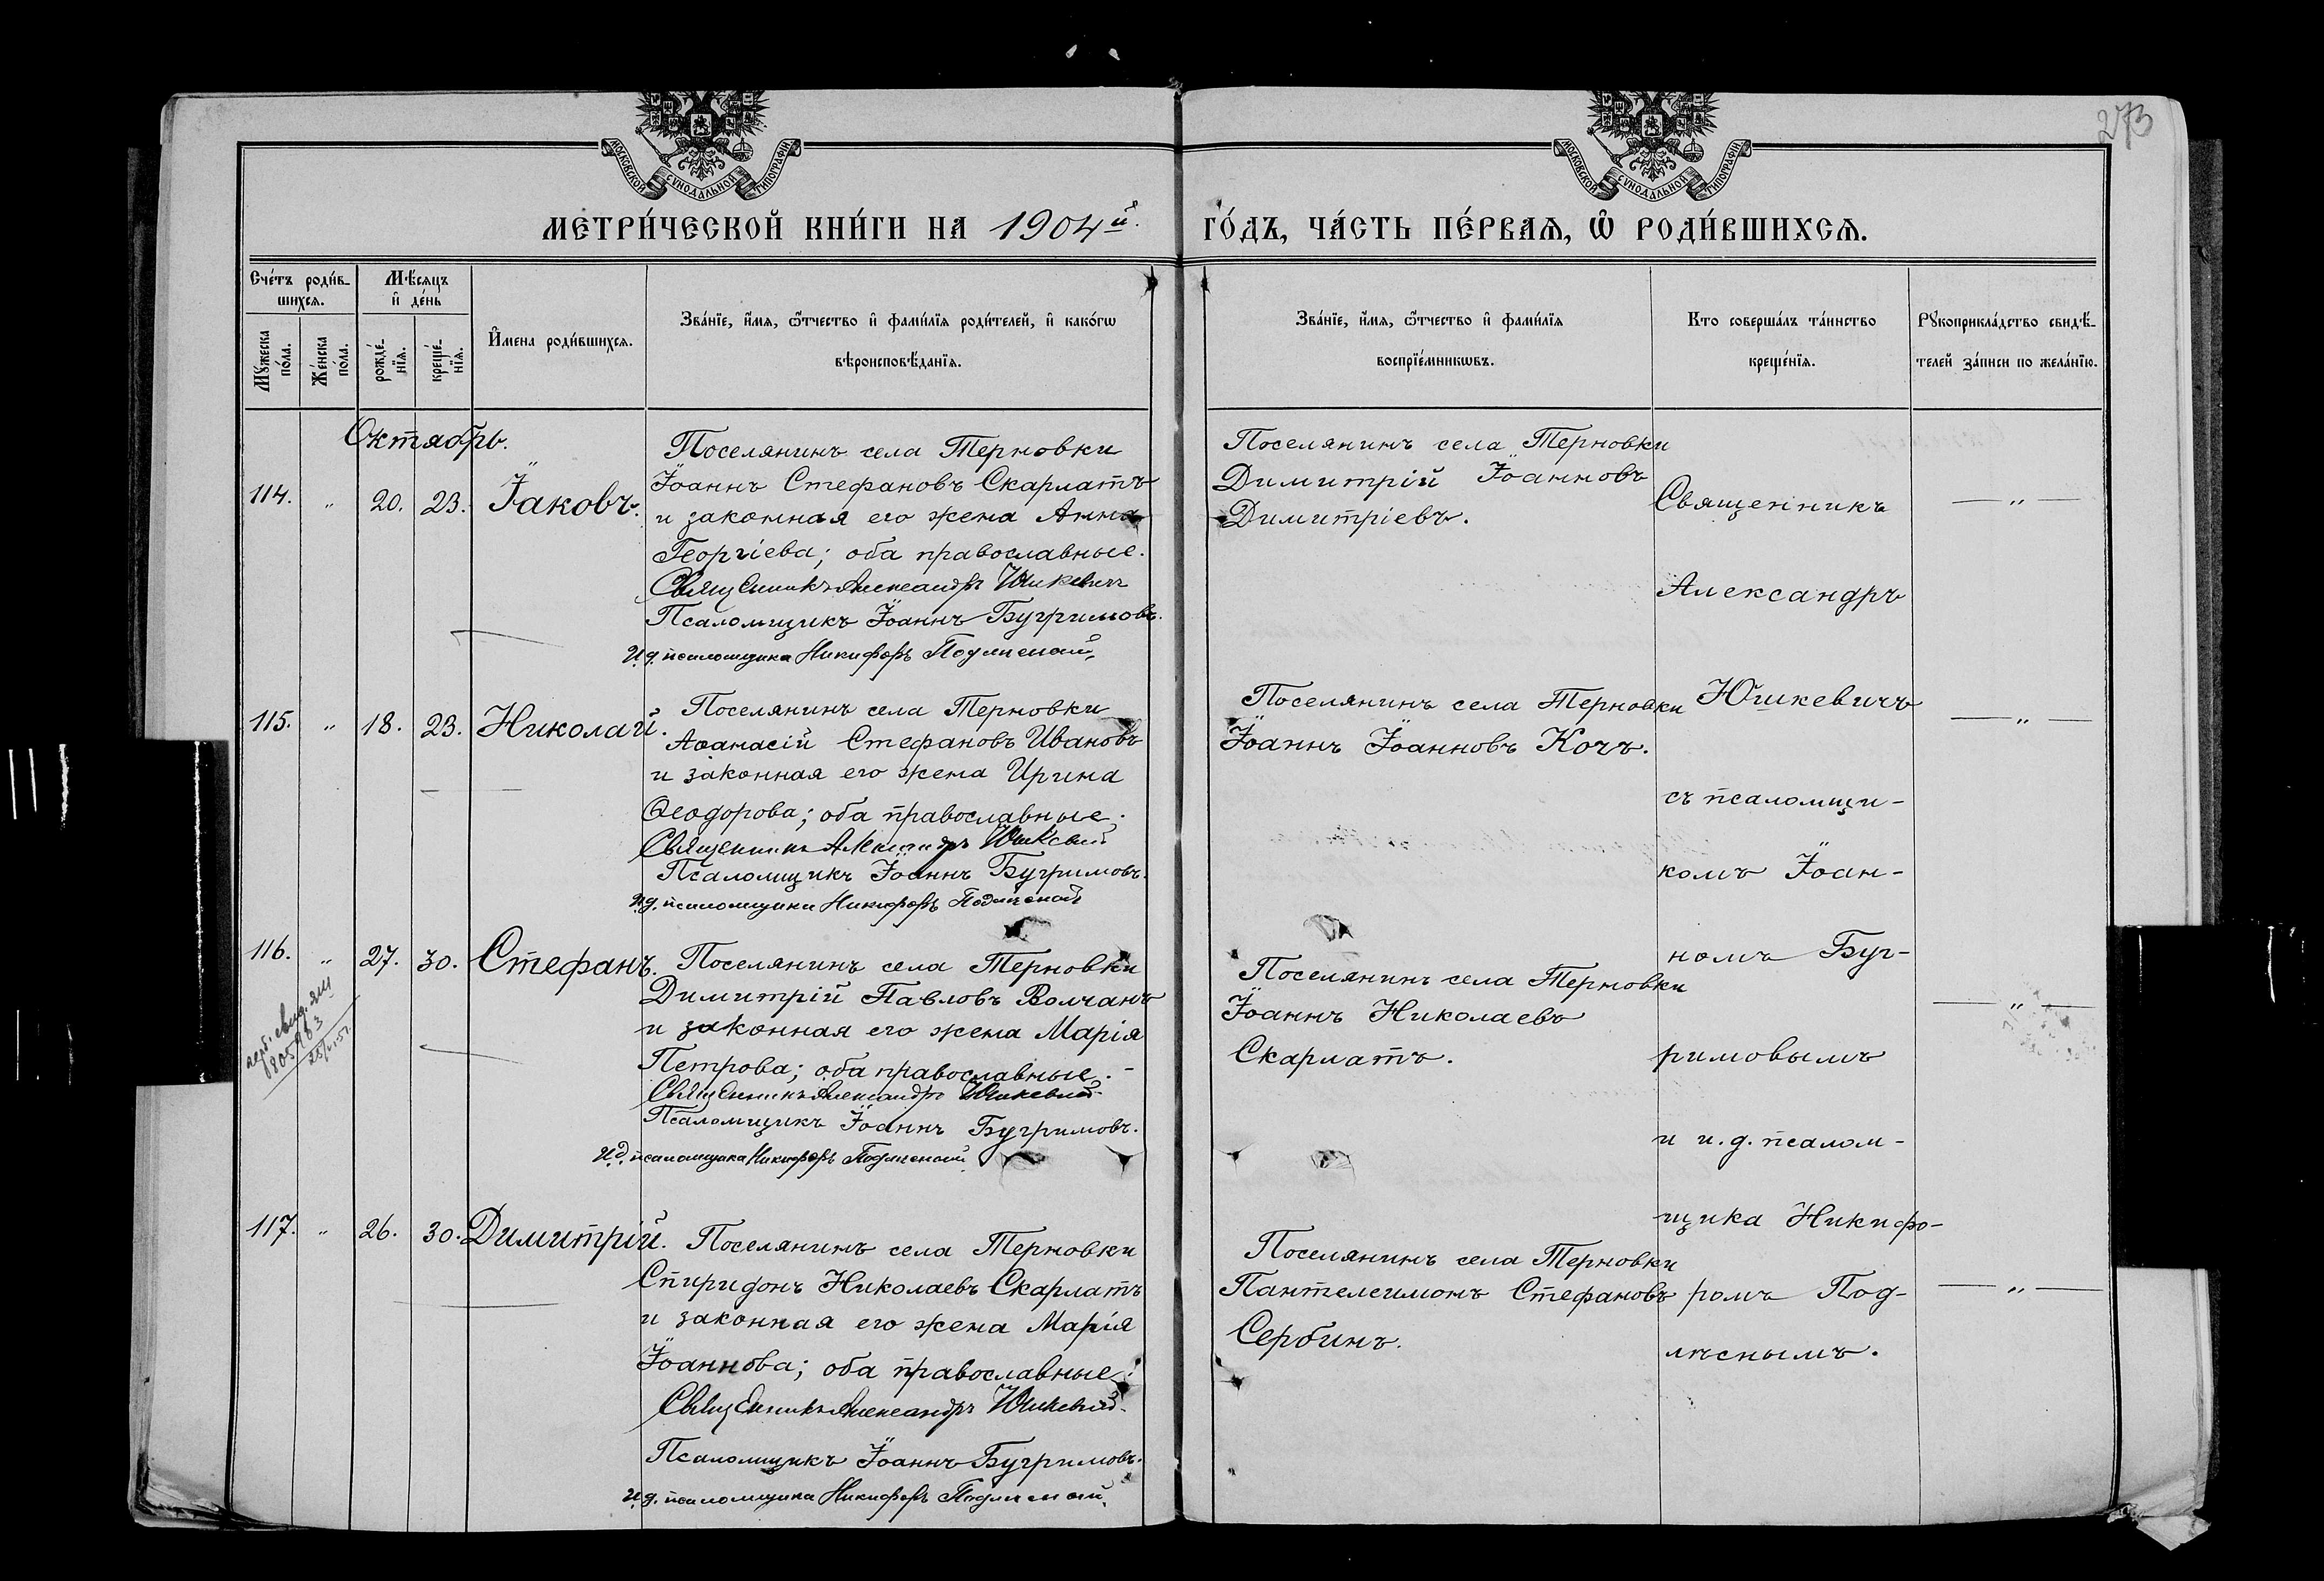 273
МОСКОВСКОЙ СѴНОДАЛЬНОЙ ТИПОГРАФІИ
МОСКОВСКОЙ СѴНОДАЛЬНОЙ ТИПОГРАФІИ
МЕТРИ́ЧЕСКОЙ КНИ́ГИ НА 1904й. ГО́ДЪ, ЧА́СТЬ ПЕ́РВАѦ, Ѡ҆ РОДИ́ВШИХСѦ.
Сче́тъ роди́в-
шихсѧ.
Мѣ́сѧцъ
и҆ де́нь
Мꙋ́жеска
по́ла.
Же́нска
по́ла.
рожде́-
нїѧ.
креще́-
нїѧ.
И҆мена роди́вшихсѧ.
Зва́нїе, и҆́мѧ, ѻ҆́тчество и҆ фами́лїѧ роди́телей, и҆ како́гѡ
вѣроисповѣ́данїѧ.
Зва́нїе, и҆́мѧ, ѻ҆́тчество и҆ фами́лїѧ
воспрїе́мникѡвъ.
Кто соверша́лъ та́инство
креще́нїѧ.
Рꙋкоприкла́дство свидѣ́-
телей за́писи по жела́нїю.
Октябрь.
114. „ 20. 23. Іаковъ.
Поселянинъ села Терновки
Іоаннъ Стефановъ Скарлатъ
и законная его жена Анна
Георгіева; оба православные.
Священникъ Александръ Юшкевичъ
Псаломщикъ Іоаннъ Бугримовъ.
И.д. псаломщика Никифоръ Подлѣсный
Поселянинъ села Терновки
Димитрій Іоанновъ
Димитріевъ.
— „ —
115. „ 18. 23. Николай.
Поселянинъ села Терновки
Аѳанасій Стефановъ Ивановъ
и законная его жена Ирина
Ѳеодорова; оба православные.
Священникъ Александръ Юшкевичъ
Псаломщикъ Іоаннъ Бугримовъ.
И.д. псаломщика Никифоръ Подлѣсный
Поселянинъ села Терновки
Іоаннъ Іоанновъ Кочъ.
— „ —
116. „ 27. 30. Стефанъ.
Поселянинъ села Терновки
Димитрій Павловъ Волчанъ
и законная его жена Марія
Петрова; оба православные. -
Священникъ Александръ Юшкевичъ
Псаломщикъ Іоаннъ Бугримовъ.
И.д. псаломщика Никифоръ Подлѣсный
Поселянинъ села Терновки
Іоаннъ Николаевъ
Скарлатъ.
— „ —
117. „ 26. 30. Димитрій.
Поселянинъ села Терновки
Спиридонъ Николаевъ Скарлатъ
и законная его жена Марія
Іоаннова; оба православные.
Священникъ Александръ Юшкевичъ
Псаломщикъ Іоаннъ Бугримовъ.
И.д. псаломщика Никифоръ Подлѣсный
Поселянинъ села Терновки
Пантелеимонъ Стефановъ
Сербинъ.
— „ —
Священникъ
Александръ
Юшкевичъ
съ псаломщи-
комъ Іоан-
номъ Буг-
римовымъ
и и.д. псалом-
щика Никифо-
ромъ Под-
лѣснымъ.